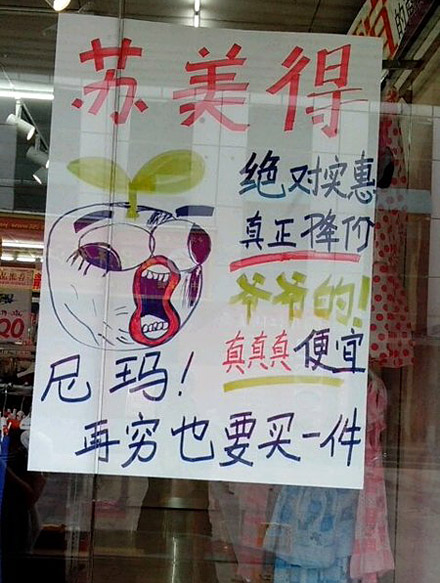 苏美得
绝对实惠
真正降价
爷爷的!
真真真便宜
尼玛!
再穷也要买一件
20
的